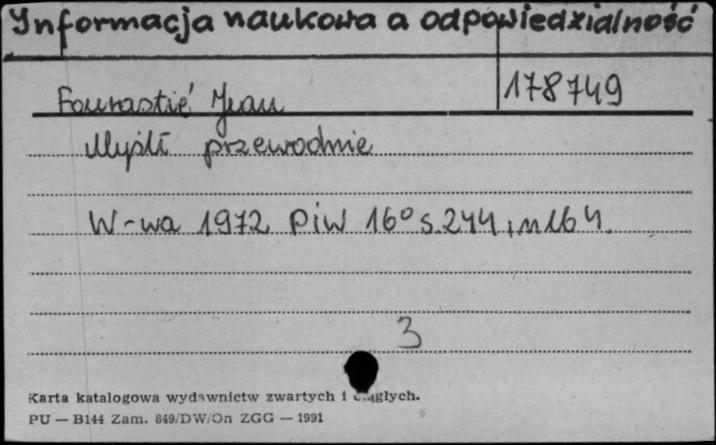 Informacja naukowa a odpowiedzialność
178749
Fourastié Jean
Myśli przewodnie
W-wa 1972 PiW 16° s. 244,
3
Karta katalogowa wydawnictw zwartych i ciągłych.
PU — B144 Zam. 849/DW/On ZGG — 1991